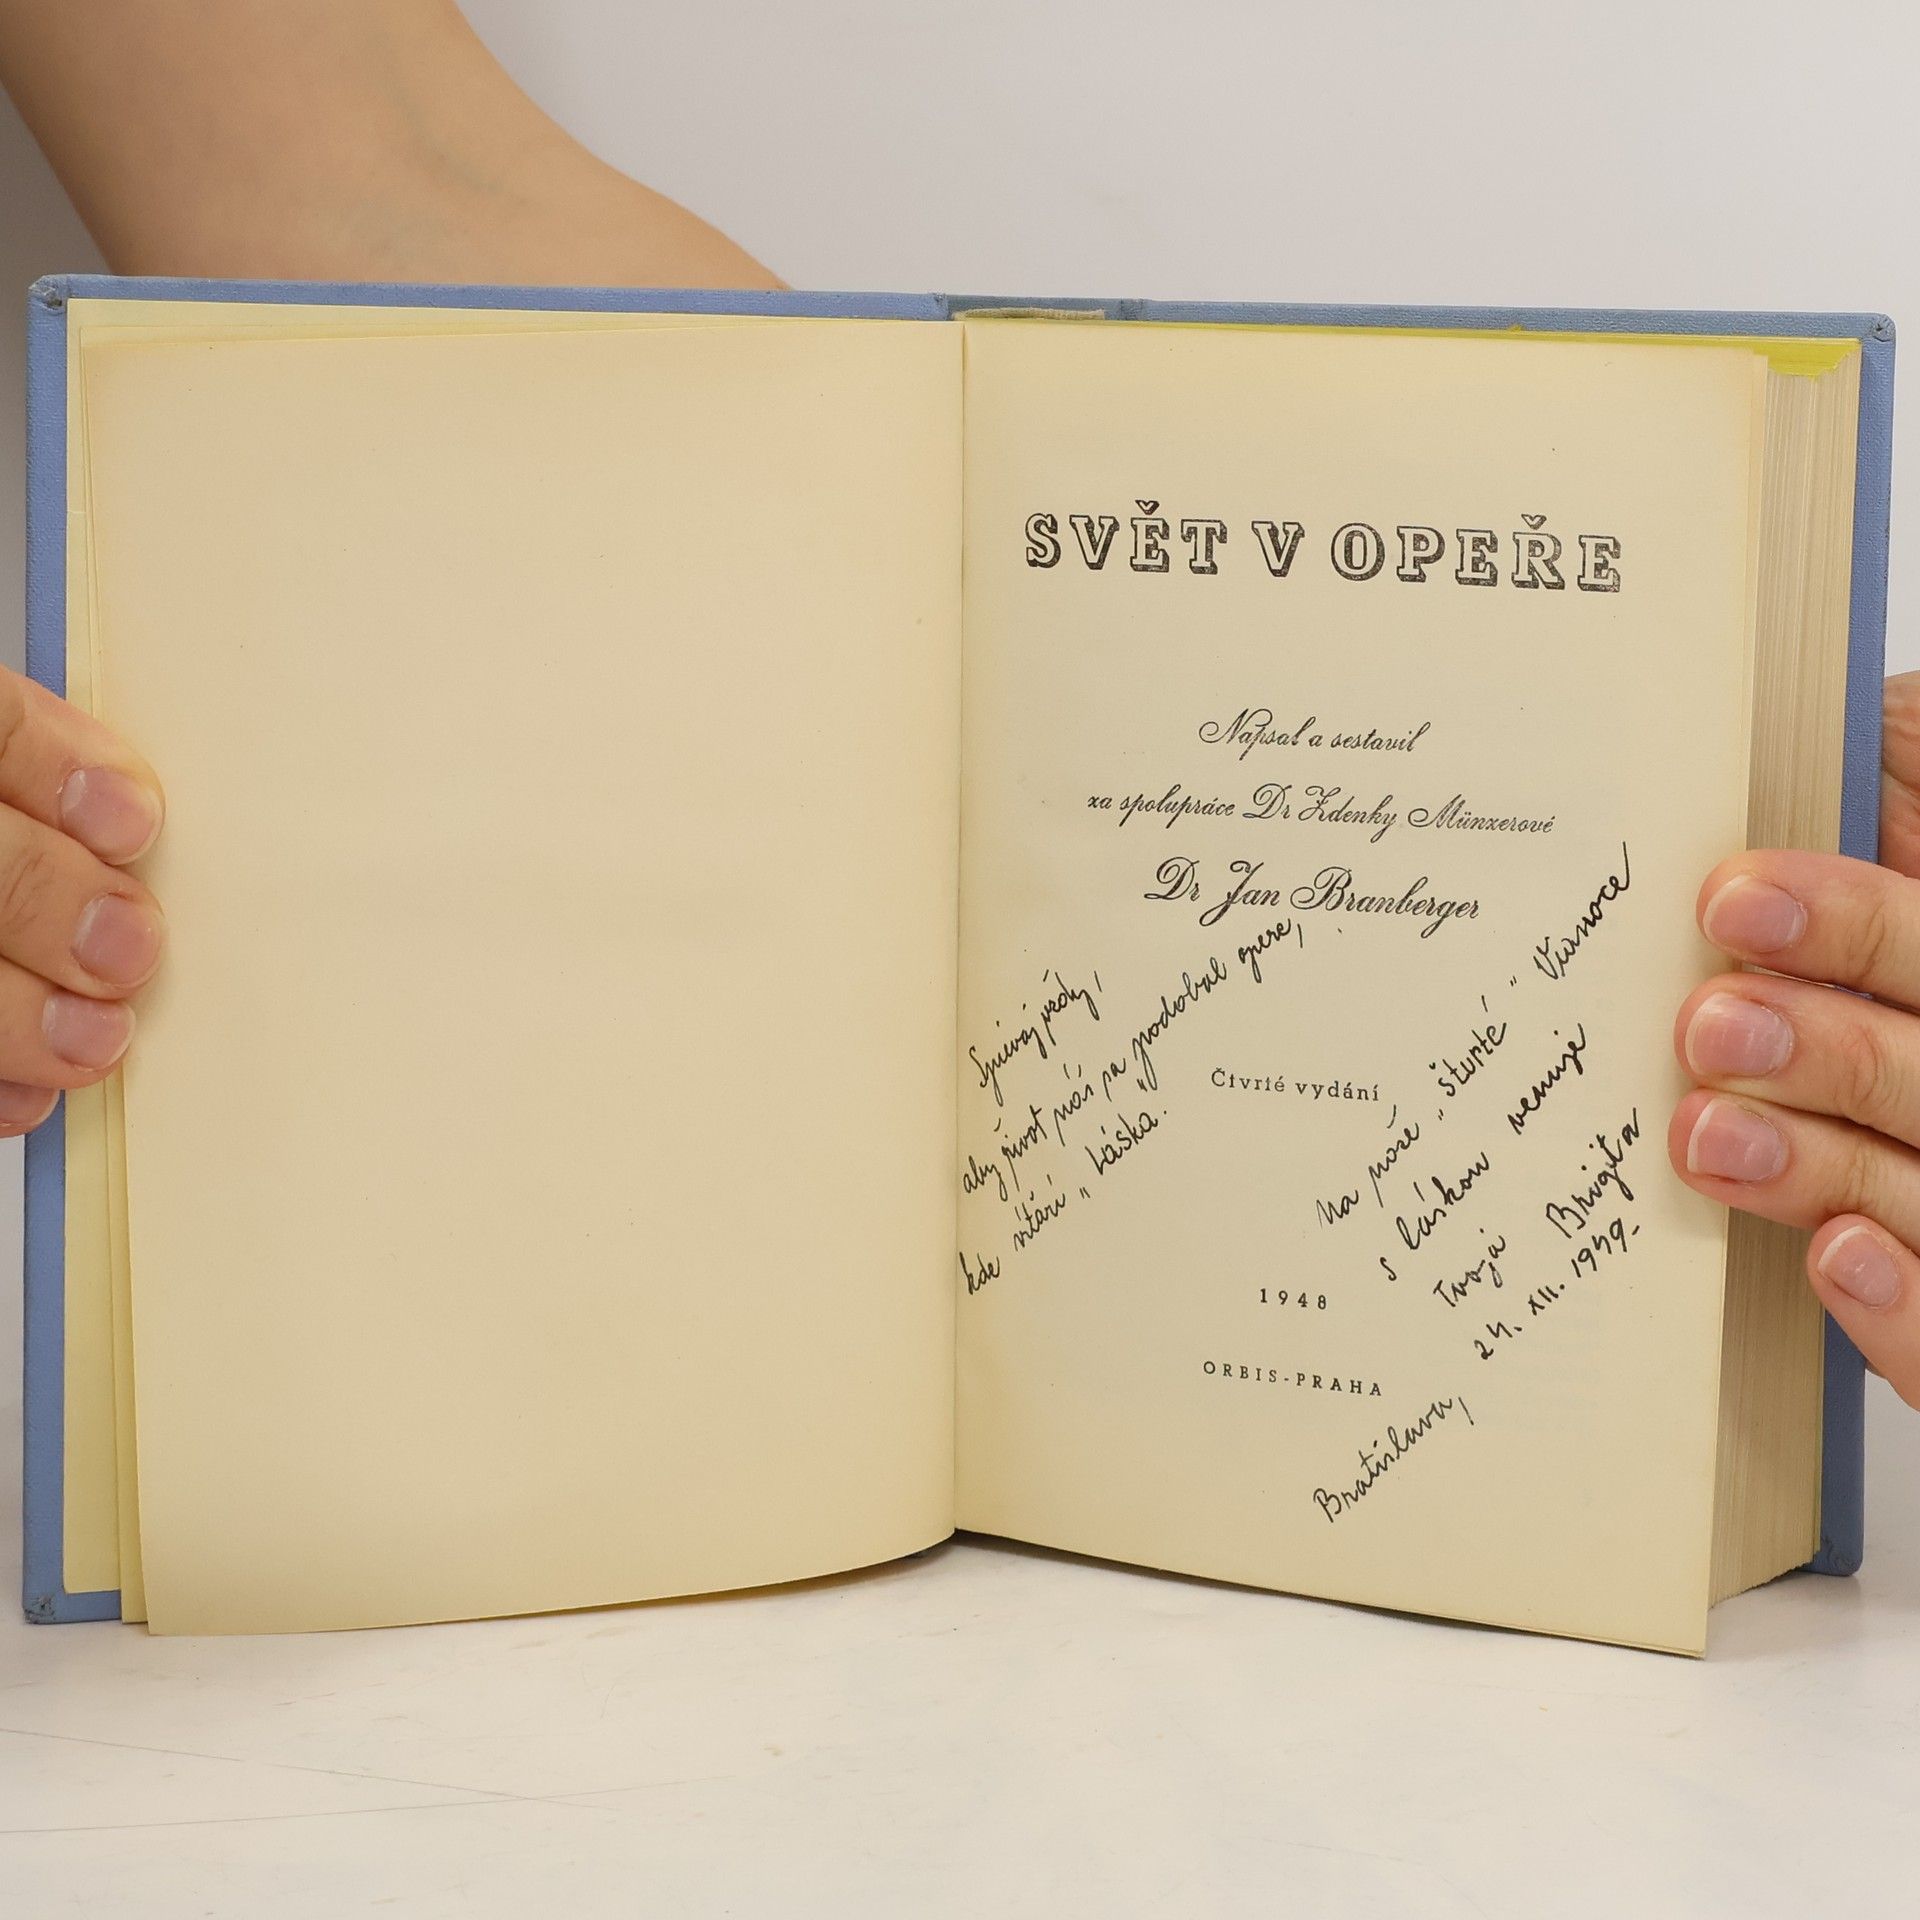 SVĚT V OPEŘE
Napsal a sestavil
za spolupráce Dr Zdenky Münzerové
Dr Jan Branberger
Spievaj vždy,
aby život náš sa „podobal opere,
kde víťazí „Láska“.
Čtvrté vydání
Na naše „štvrté“ Vianoce
s láskou venuje
Tvoja Brigita
Bratislava, 24. XII. 1959.
1948
ORBIS-PRAHA